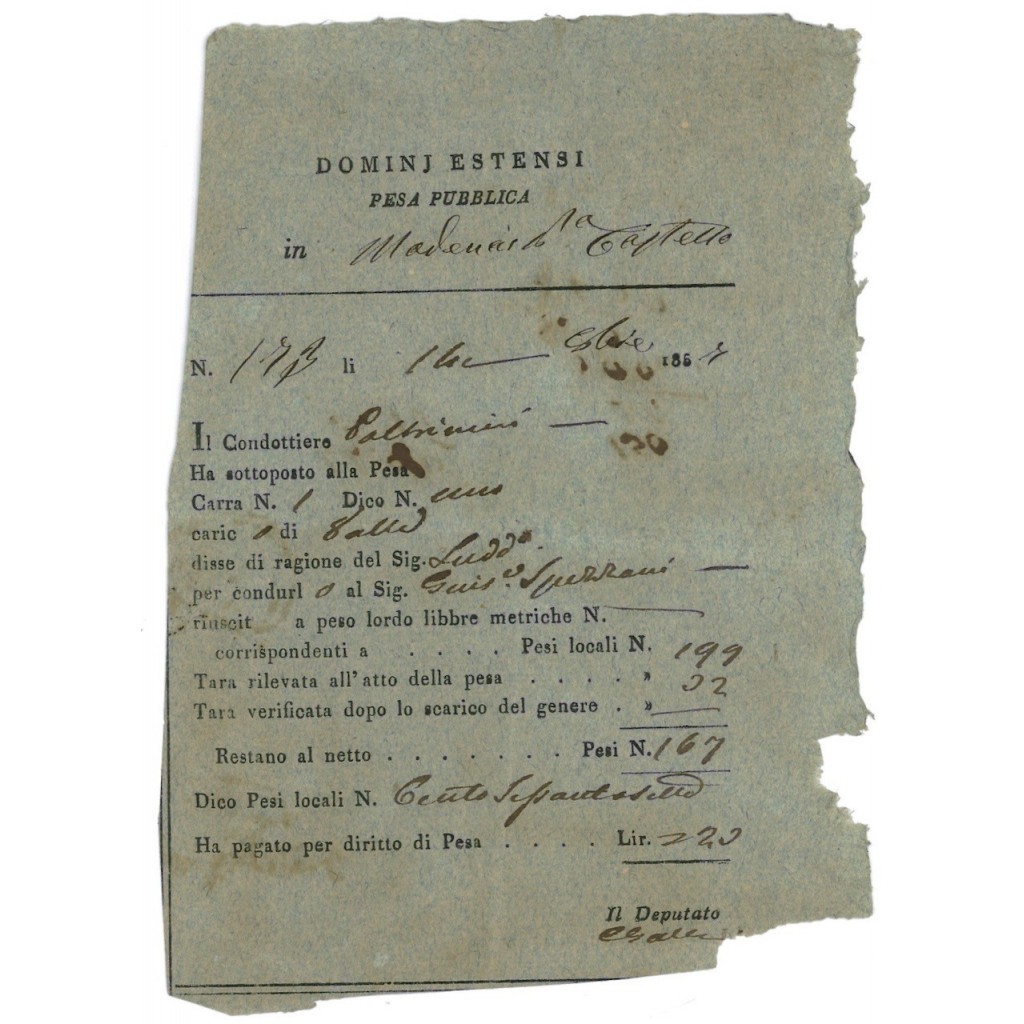 DOMINJ ESTENSI
PESA PUBBLICA
in Modena Castello
N. 173 li 14 8bre 1857
Il Condottiero Paltrinieri
Ha sottoposto alla Pesa
Carra N. 1 Dico N. uno
caric o di
disse di ragione del Sig. Sudd.o
per condurl o al Sig. Spezzani
riuscit a peso lordo libbre metriche N.
corrispondenti a . . . . Pesi locali N. 199
Tara rilevata all'atto della pesa . . . . » 32
Tara verificata dopo lo scarico del genere . »
Restano al netto . . . . . . . Pesi N. 167
Dico Pesi locali N. Cento Sessantasette
Ha pagato per diritto di Pesa . . . . Lir. 20
Il Deputato